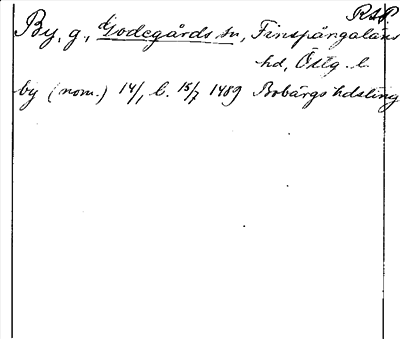 RAP
By, g., Godegårds sn, Finspångaläns
hd, Östg. l.
by (nom.) 14/1, b. 15/7 1489 Bobärgs hdsting